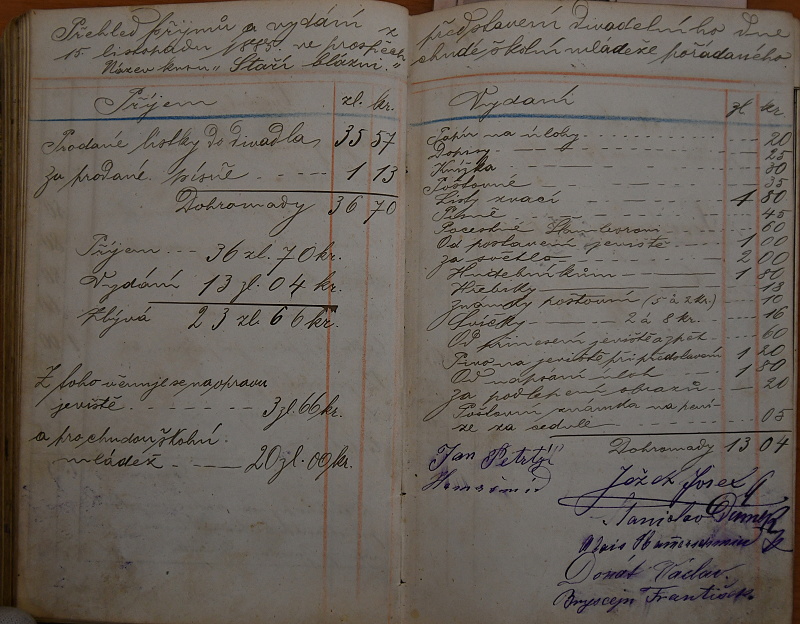 Přehled příjmů a vydání z
15. listopadu 1885. ve prospěch
Název kusu „Staří blázni."
Příjem zl. kr.
Prodané lístky do divadla, 35 57
za prodané písně - - - - 1 13
Dohromady 36 70
Příjem - - - 36 zl. 70 kr.
Vydání 13 zl. 04 kr.
Zbývá 23 zl. 66 kr.
Z toho věnuje se na opravu
jeviště. - - - - - - 3 zl. 66 kr.
a pro chudou školní
mládež. - - - - 20 zl. 00 kr.
představení divadelního dne
chudé školní mládeže pořádaného
Vydání zl kr.
Papír na úlohy. 20
Dopisy 25
Knížka 30
Poštovné 35
Listy zvací 1 80
Písně 45
Pocestné 60
Od postavení jeviště 1 00
za světlo 2 00
Hudebníkům 1 80
Hřebíky 18
Známky poštovní (5 á 2 kr.) 10
Svíčky 2 á 8 kr. 16
Od přinesení jeviště a zpět 60
Pivo na jeviště při představení 1 20
Od napsání úloh 1 80
za podlepení obrazů 20
Poštovní známka na peníze
za sedule 05
Dohromady 13 04
Jan Petrtyl
Josef
Stanislav
Donát Václav.
František